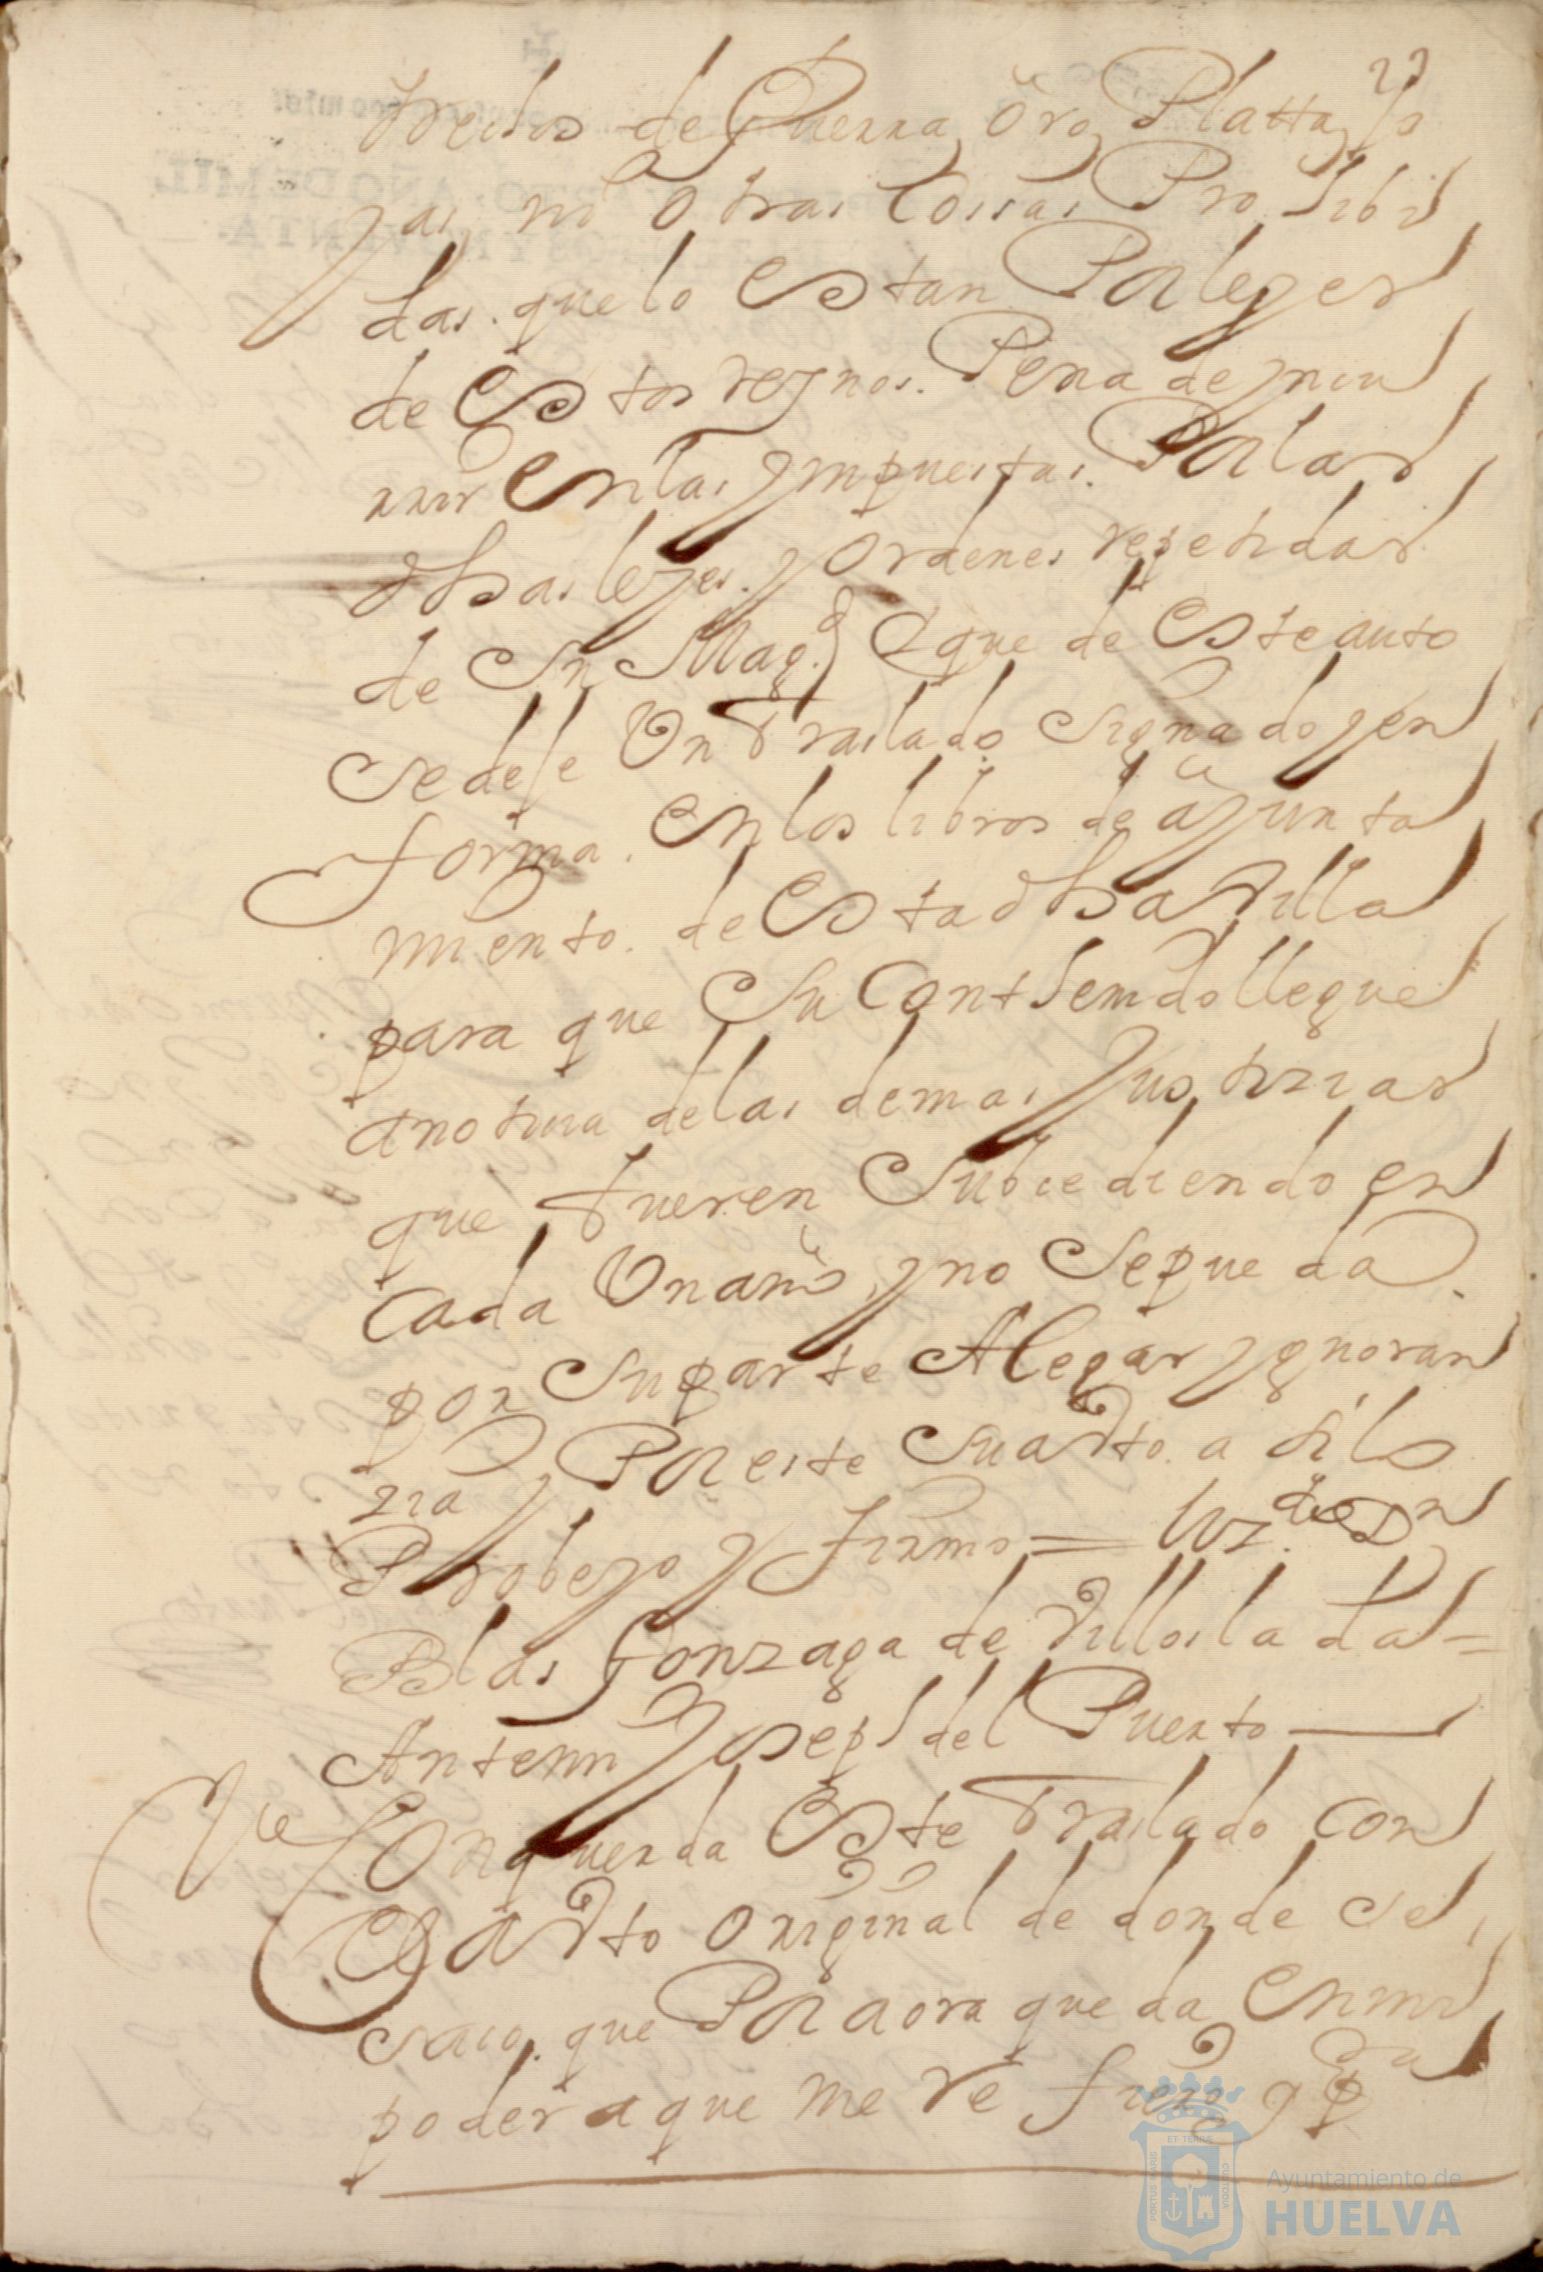 23
trechos de Guerra, Oro, Platta, Jo
yas, ni Otras Cossas Prohibi
das. que lo Estan Por leyes
de Estos reynos. Pena de yncu
rrir En las ympuestas. Por las
dhas leyes. y ordenes repetidas
de Su Mag.d Y que de Este auto
Se dese Un Traslado Signado y en
forma. En los libros de ayunta
miento. de Esta dha Villa
para que Su Conthemdo llegue
a notiia de las demas Justizias
que fueren Subcediendo en
Cada Un año, y no Se pueda
por Su parte Alegar ygnoran
zia y Por este Su auto a si lo
Probeyo y firmo = liz.do Dn
Blas Gonzaga de Villosla da =
Antemi Joseph del Puerto
Conquerda Este Traslado con
El auto original de donde Se
saco. que Por aora queda En mi
poder a que me refiero y pa
Ayuntamiento de
HUELVA